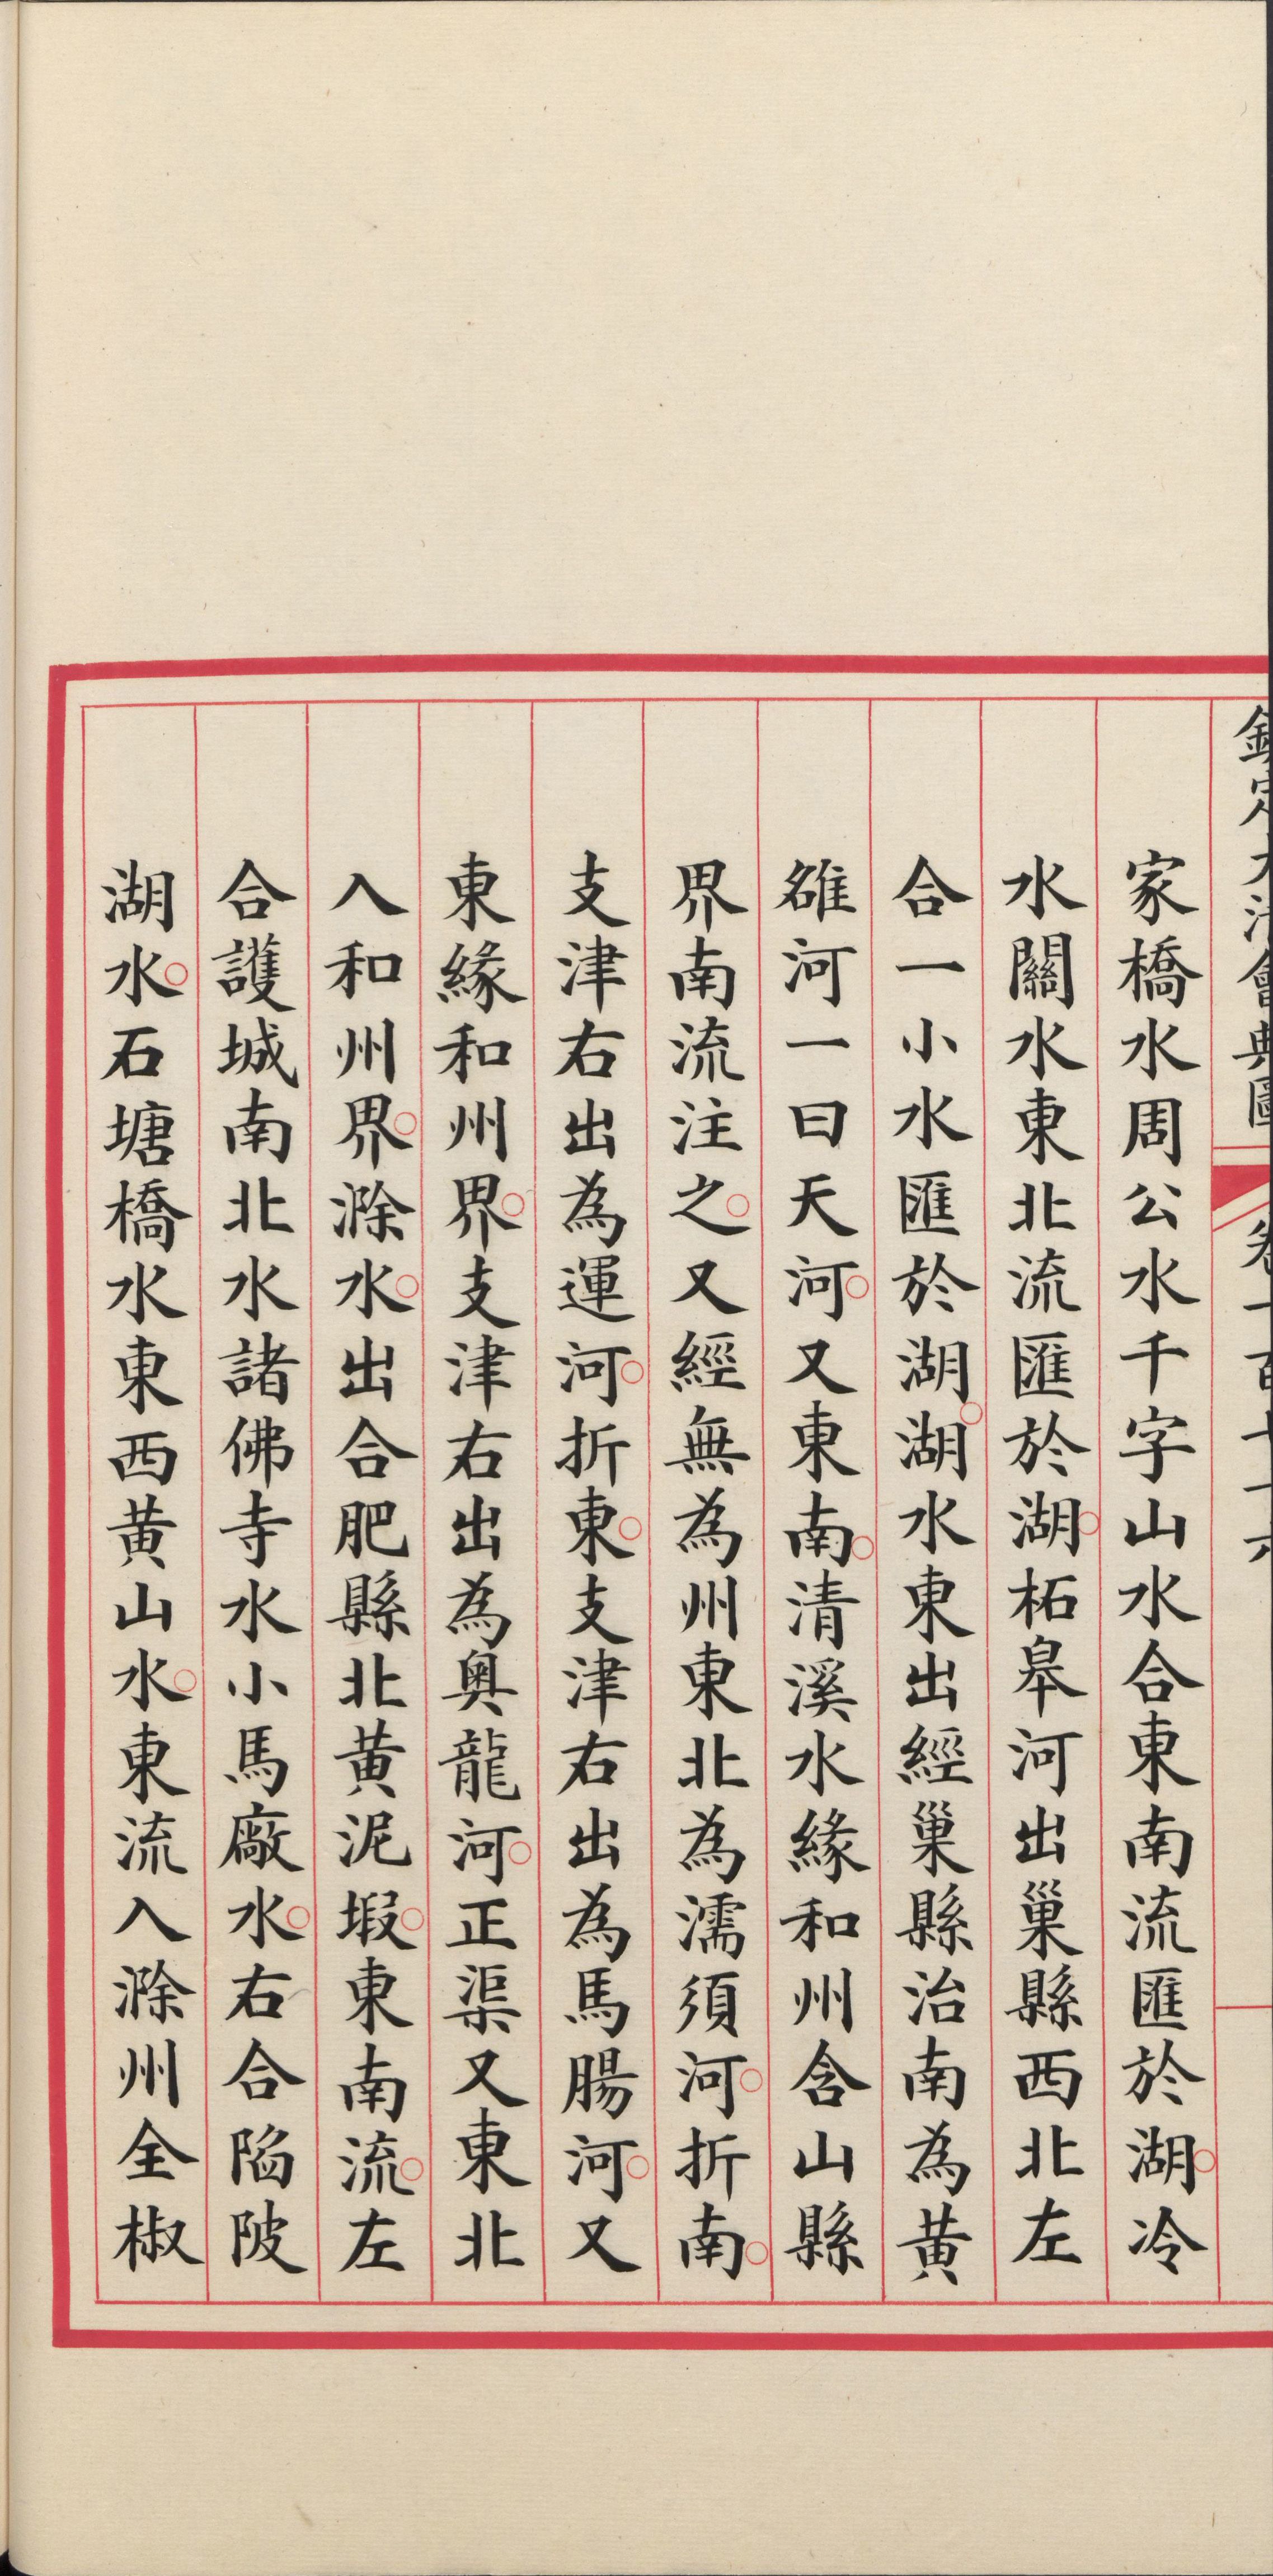 欽定大清會典圖 卷一百七十六
家橋水周公水千字山水合東南流匯於湖冷
水關水東北流匯於湖柘皋河出巢縣西北左
合一小水匯於湖湖水東出經巢縣治南為黃
雒河一曰天河又東南清溪水緣和州含山縣
界南流注之又經無為州東北為濡須河折南
支津右出為運河折東支津右出為馬腸河又
東緣和州界支津右出為奧龍河正渠又東北
入和州界滁水出合肥縣北黃泥塅東南流左
合護城南北水諸佛寺水小馬廠水右合陷陂
湖水石塘橋水東西黃山水東流入滁州全椒